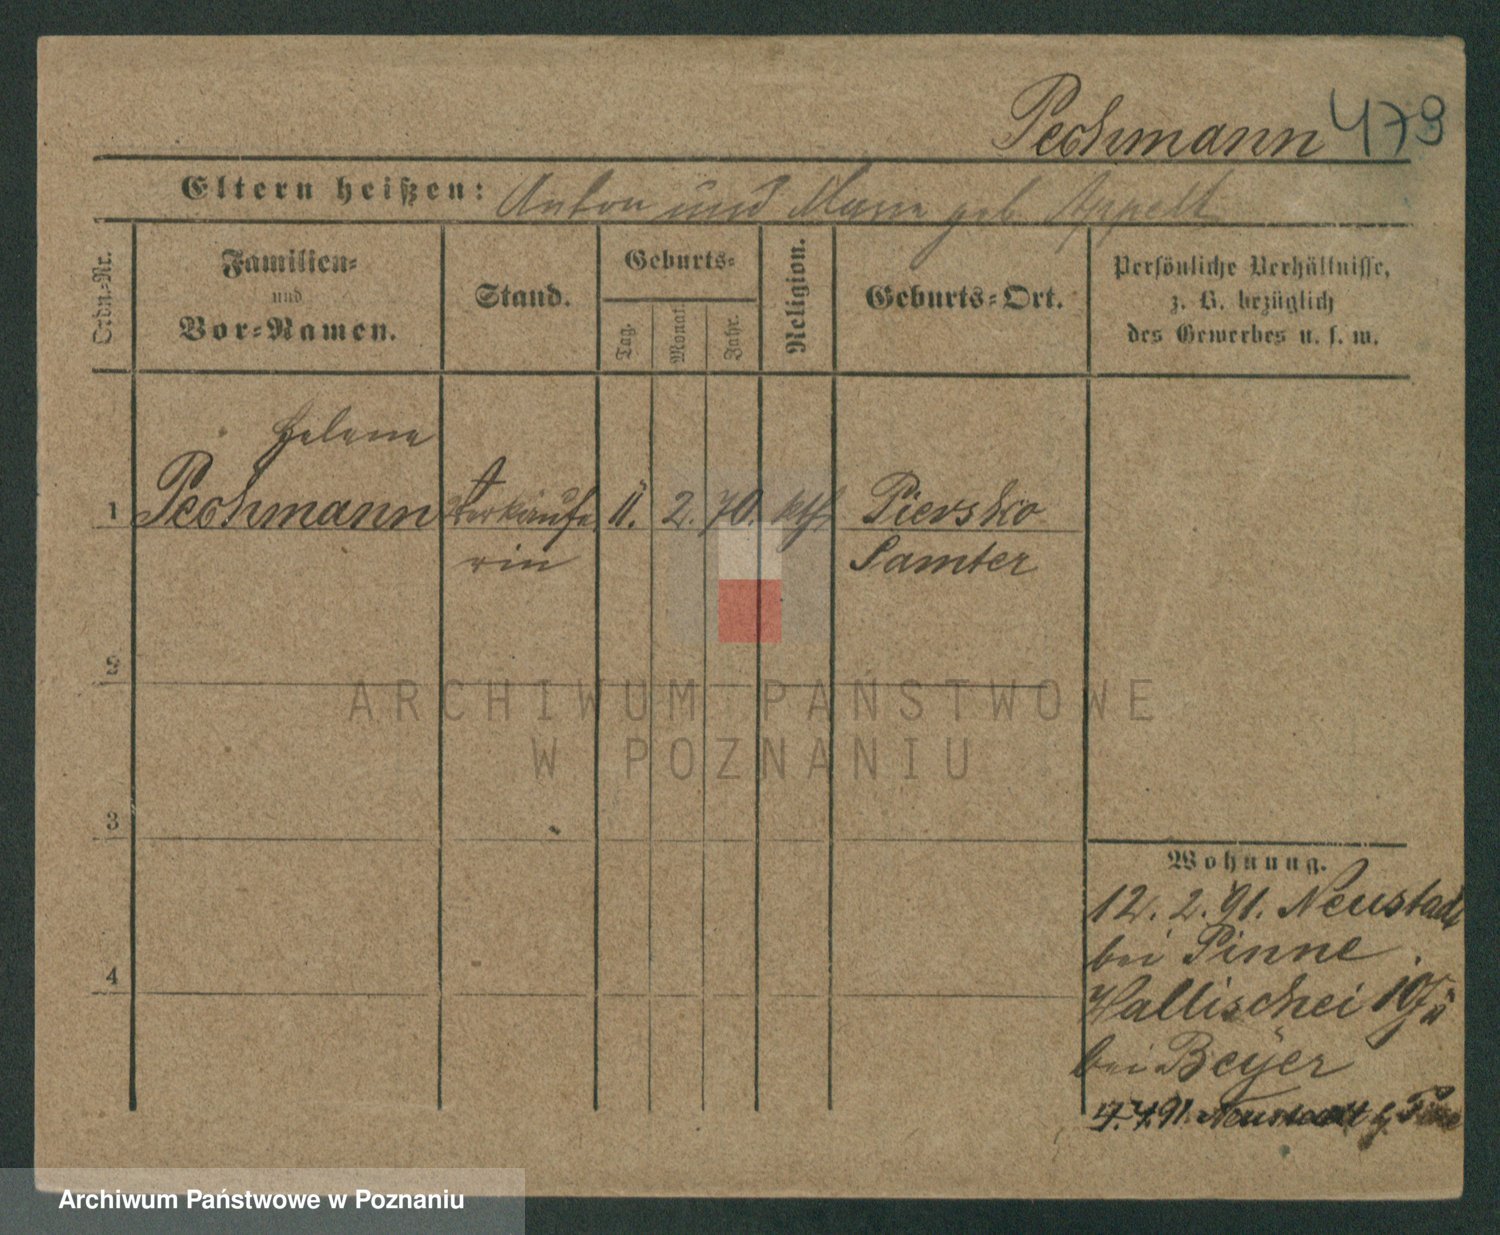 Pechmann 479
Eltern heißen: Anton und Marie geb. Appelt
Ordn.-Nr.
Familien-
und
Vor-Namen.
Stand.
Geburts-
Tag.
Monat.
Jahr.
Religion.
Geburts-Ort.
Persönliche Verhältnisse,
z. B. bezüglich
des Gewerbes u. s. w.
Helene
1 Pechmann Verkäufe 11. 2. 70. kth Piersko
rin Samter
2
ARCHIWUM PAŃSTWOWE
W POZNANIU
3
4
Wohnung.
12. 2. 91. Neustadt
bei Pinne
Wallischei 10
bei Beyer
4. 91. Neustadt b Pinne
Archiwum Państwowe w Poznaniu